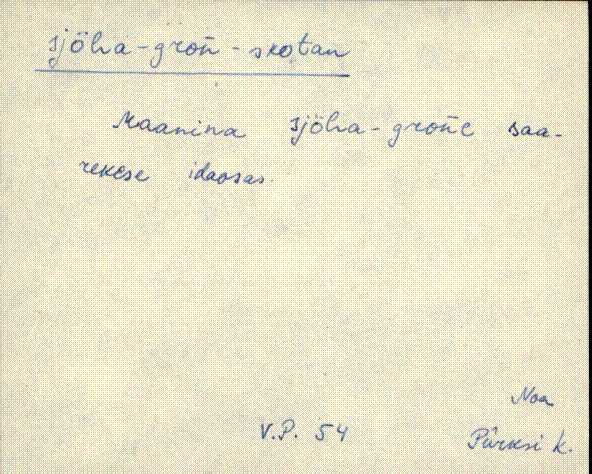 sjöha-groñ-skotan
Maanina sjöha-groñe saa-
rekese idaosas.
Noa
V.P. 54
Pürksi k.